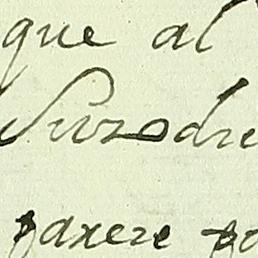 que al
Suzodre
parere pa